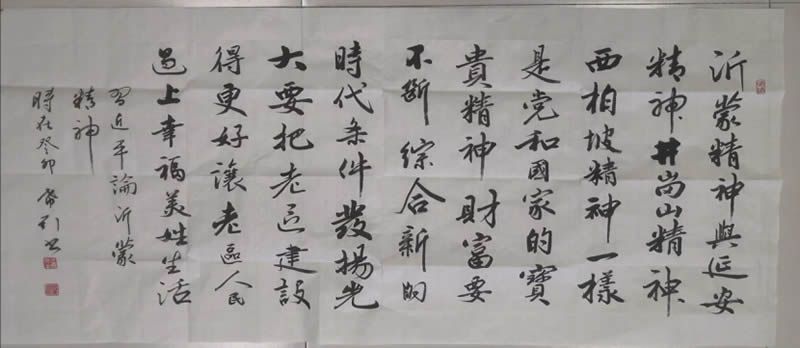 沂蒙精神與延安
精神井崗山精神
西柏坡精神一樣
是党和國家的寶
貴精神財富要
不斷綜合新的
時代条件發揚光
大要把老区建設
得更好讓老區人民
过上幸福美姓生活
習近平論沂蒙
精神
時在癸卯